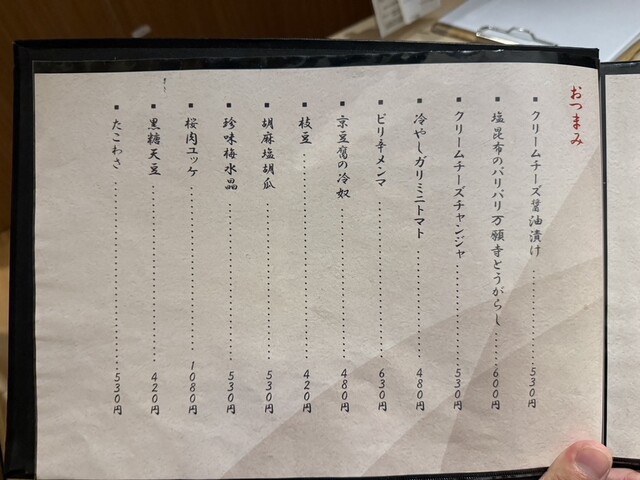 おつまみ
■ クリームチーズ醤油漬け 530円
■ 塩昆布のパリパリ万願寺とうがらし 600円
■ クリームチーズチャンジャ 530円
■ 冷やしガリミニトマト 480円
■ ピリ辛メンマ 630円
■ 京豆富の冷奴 480円
■ 枝豆 420円
■ 胡麻塩胡瓜 530円
■ 珍味梅水晶 530円
■ 桜肉ユッケ 1080円
■ 黒糖天豆 420円
■ たこわさ 530円